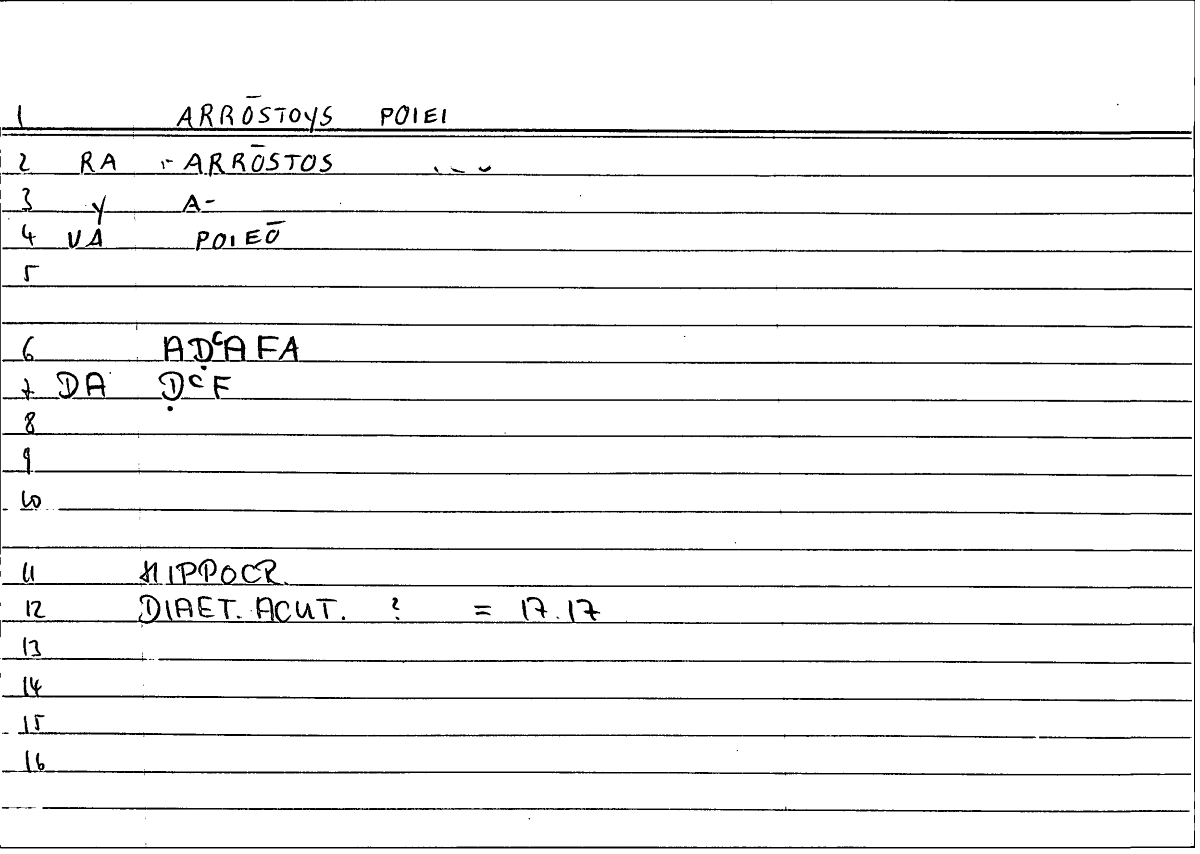 1 ARRŌSTOYS POIEI
2 RA ARRŌSTOS
3 Y A-
4 VA POIEŌ
5
6 AḌᶜAFA
7 DA ḌᶜF
8
9
10
11 HIPPOCR.
12 DIAET. ACUT. ? = 17.17
13
14
15
16